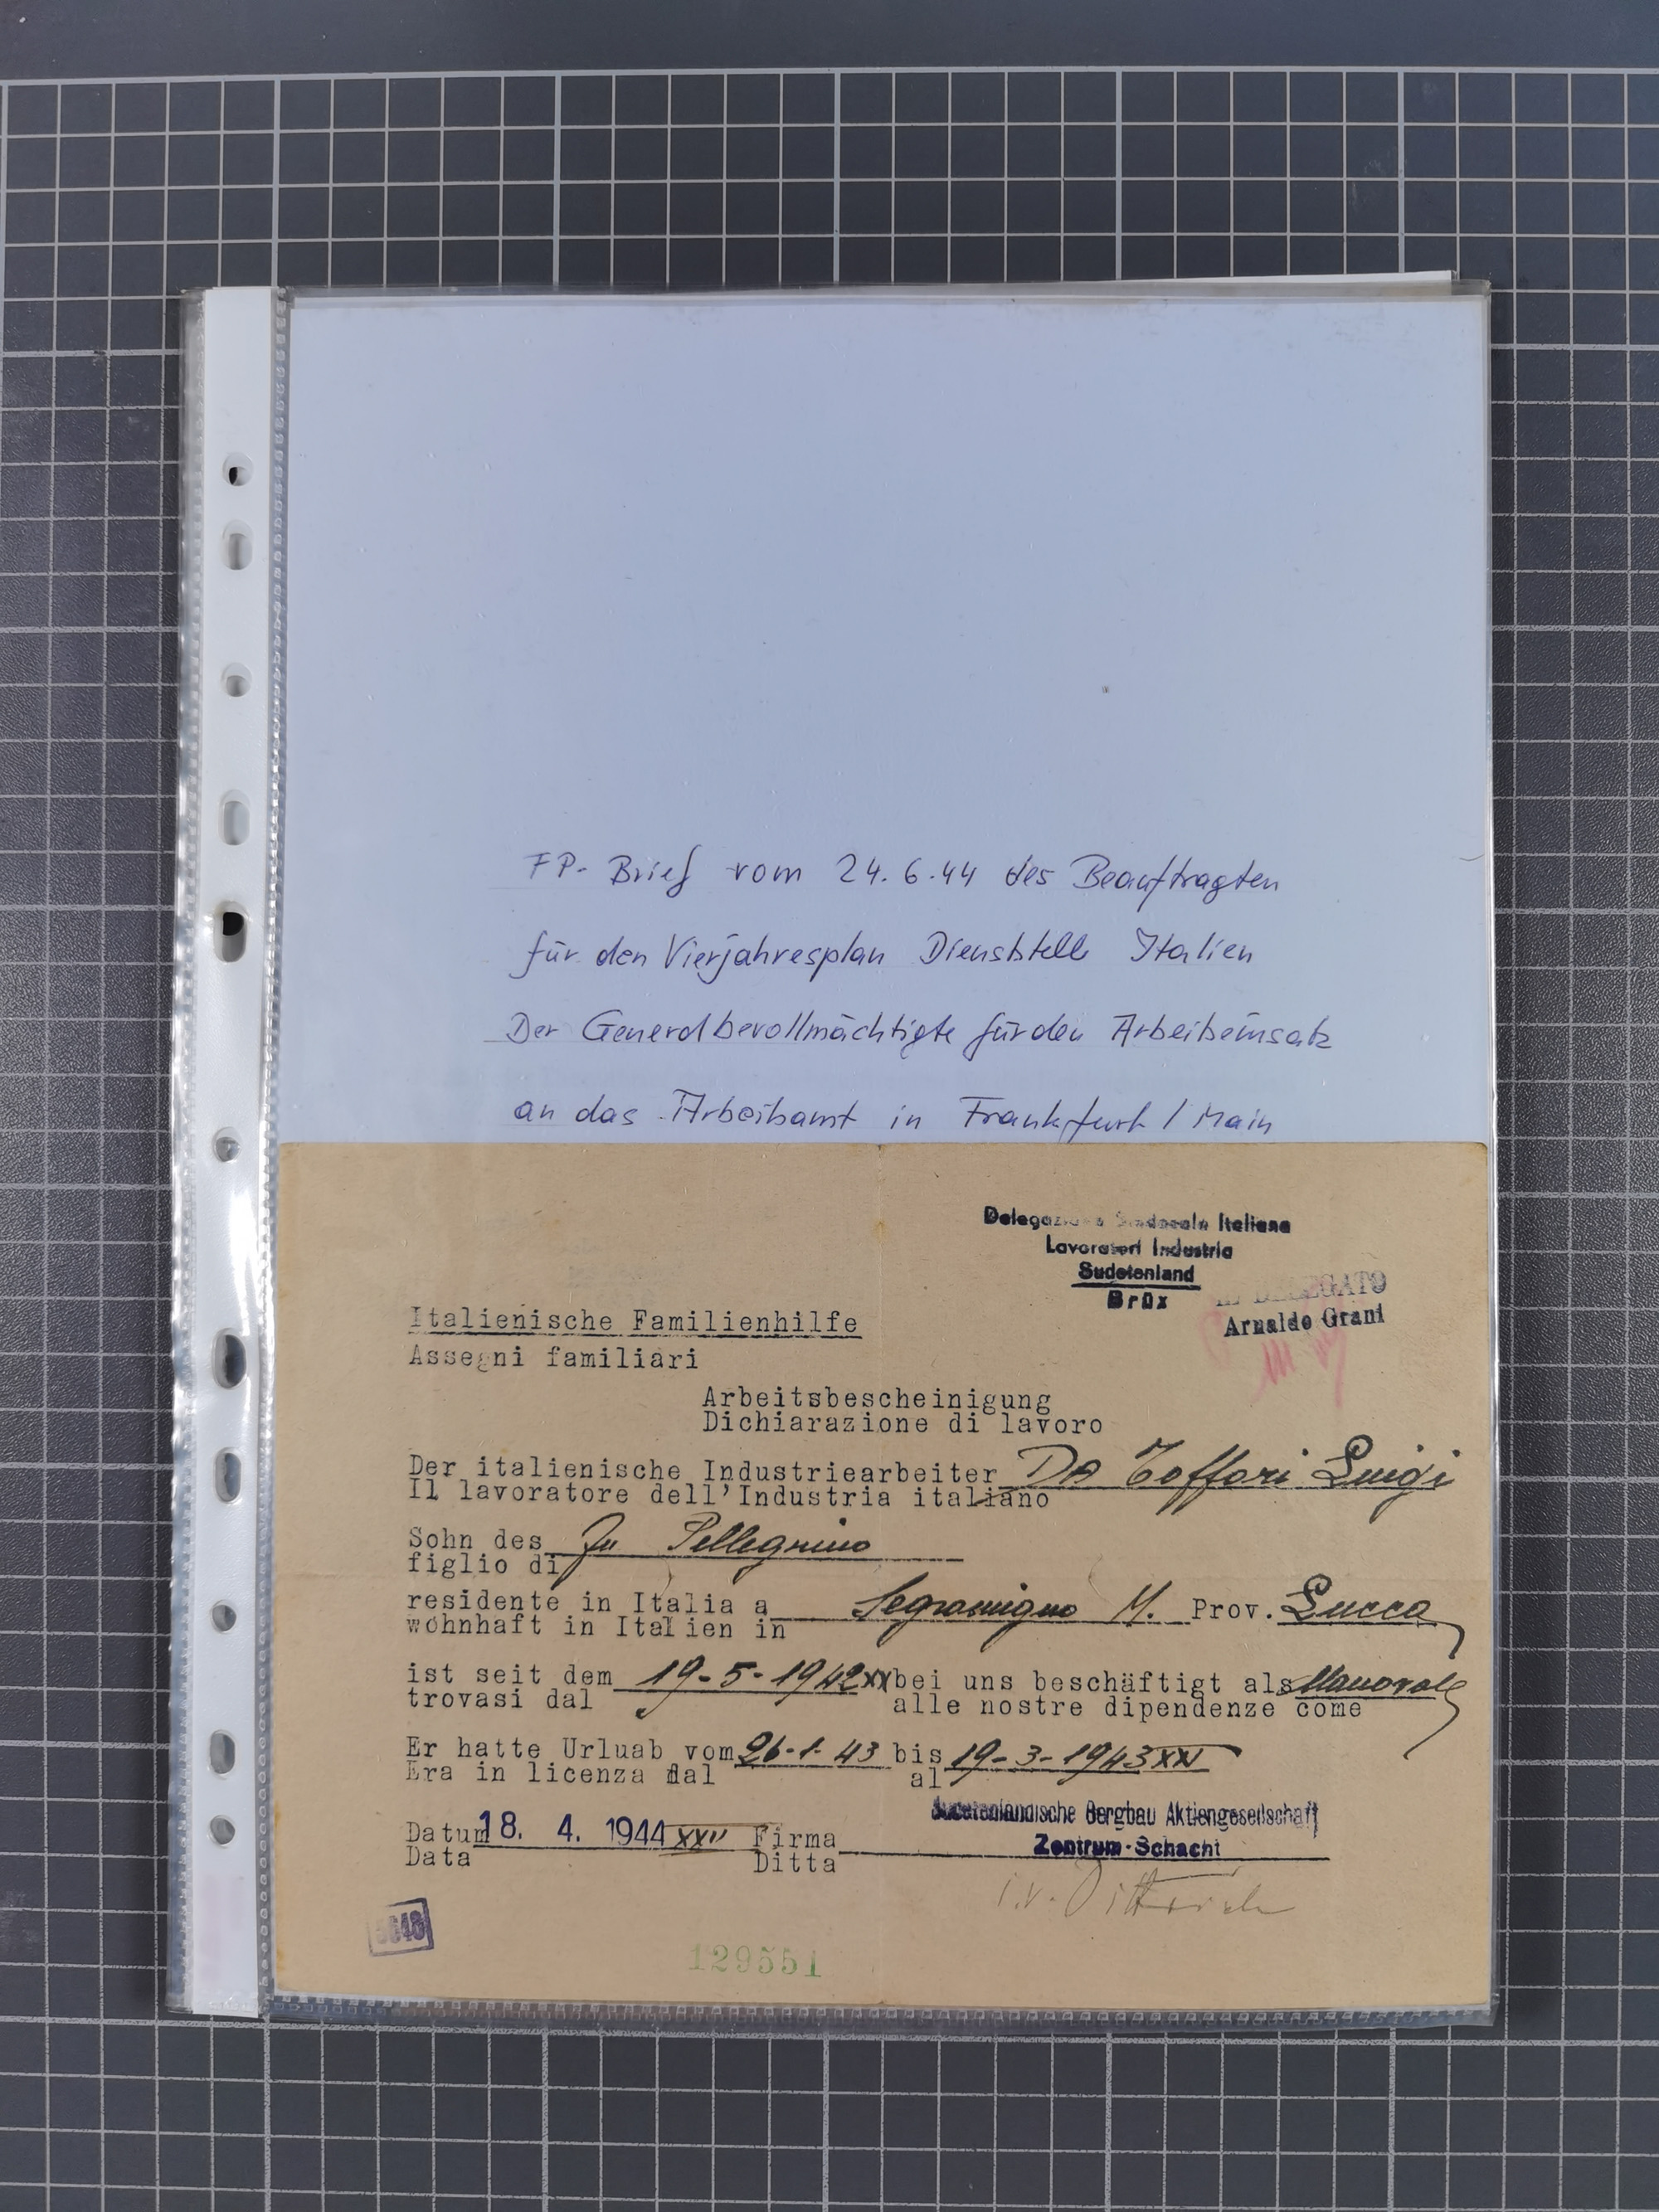 FP- Brief vom 24.6.44 des Beauftragten
für den Vierjahresplan Dienststelle Italien
Der Generalbevollmächtigte für den Arbeitseinsatz
an das Arbeitsamt in Frankfurt / Main
Delegazione Sindacale Italiana
Lavoratori Industria
Sudetenland
Brüx
IL DELEGATO
Arnaldo Grani
Italienische Familienhilfe
Assegni familiari
Arbeitsbescheinigung
Dichiarazione di lavoro
Der italienische Industriearbeiter Da Toffori Luigi
Il lavoratore dell'Industria italiano
Sohn des fu Pellegrino
figlio di
residente in Italia a Segromigno M. Prov. Lucca
wohnhaft in Italien in
ist seit dem 19-5-1942 XX bei uns beschäftigt als Manovale
trovasi dal alle nostre dipendenze come
Er hatte Urluab vom 26-1-43 bis 19-3-1943 XXI
Era in licenza dal al
Datum 18. 4. 1944 XXII Firma Sudetenländische Bergbau Aktiengesellschaft
Data Ditta Zentrum-Schacht
i.V. Dittrich
129551